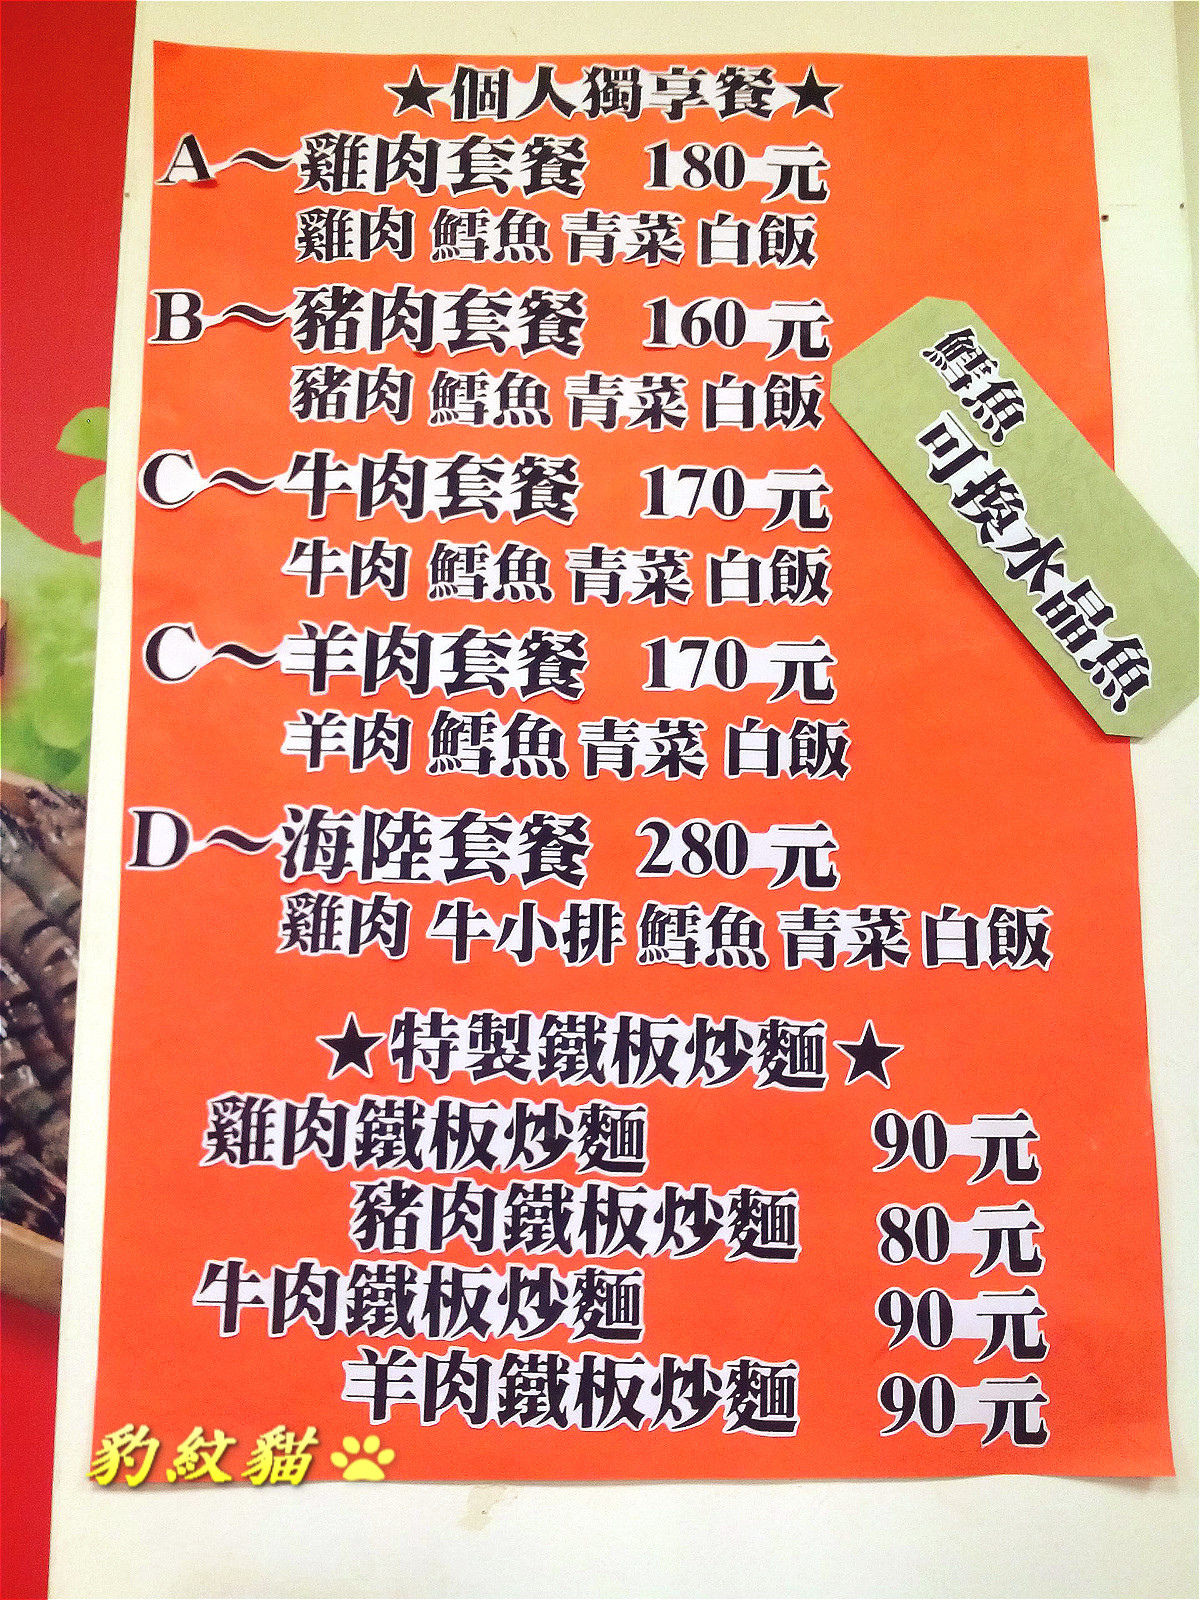 ★個人獨享餐★
A～雞肉套餐 180元
雞肉 鱈魚 青菜 白飯
B～豬肉套餐 160元
豬肉 鱈魚 青菜 白飯
C～牛肉套餐 170元
牛肉 鱈魚 青菜 白飯
C～羊肉套餐 170元
羊肉 鱈魚 青菜 白飯
D～海陸套餐 280元
雞肉 牛小排 鱈魚 青菜 白飯
鱈魚
可換水晶魚
★特製鐵板炒麵★
雞肉鐵板炒麵 90元
豬肉鐵板炒麵 80元
牛肉鐵板炒麵 90元
羊肉鐵板炒麵 90元
豹紋貓